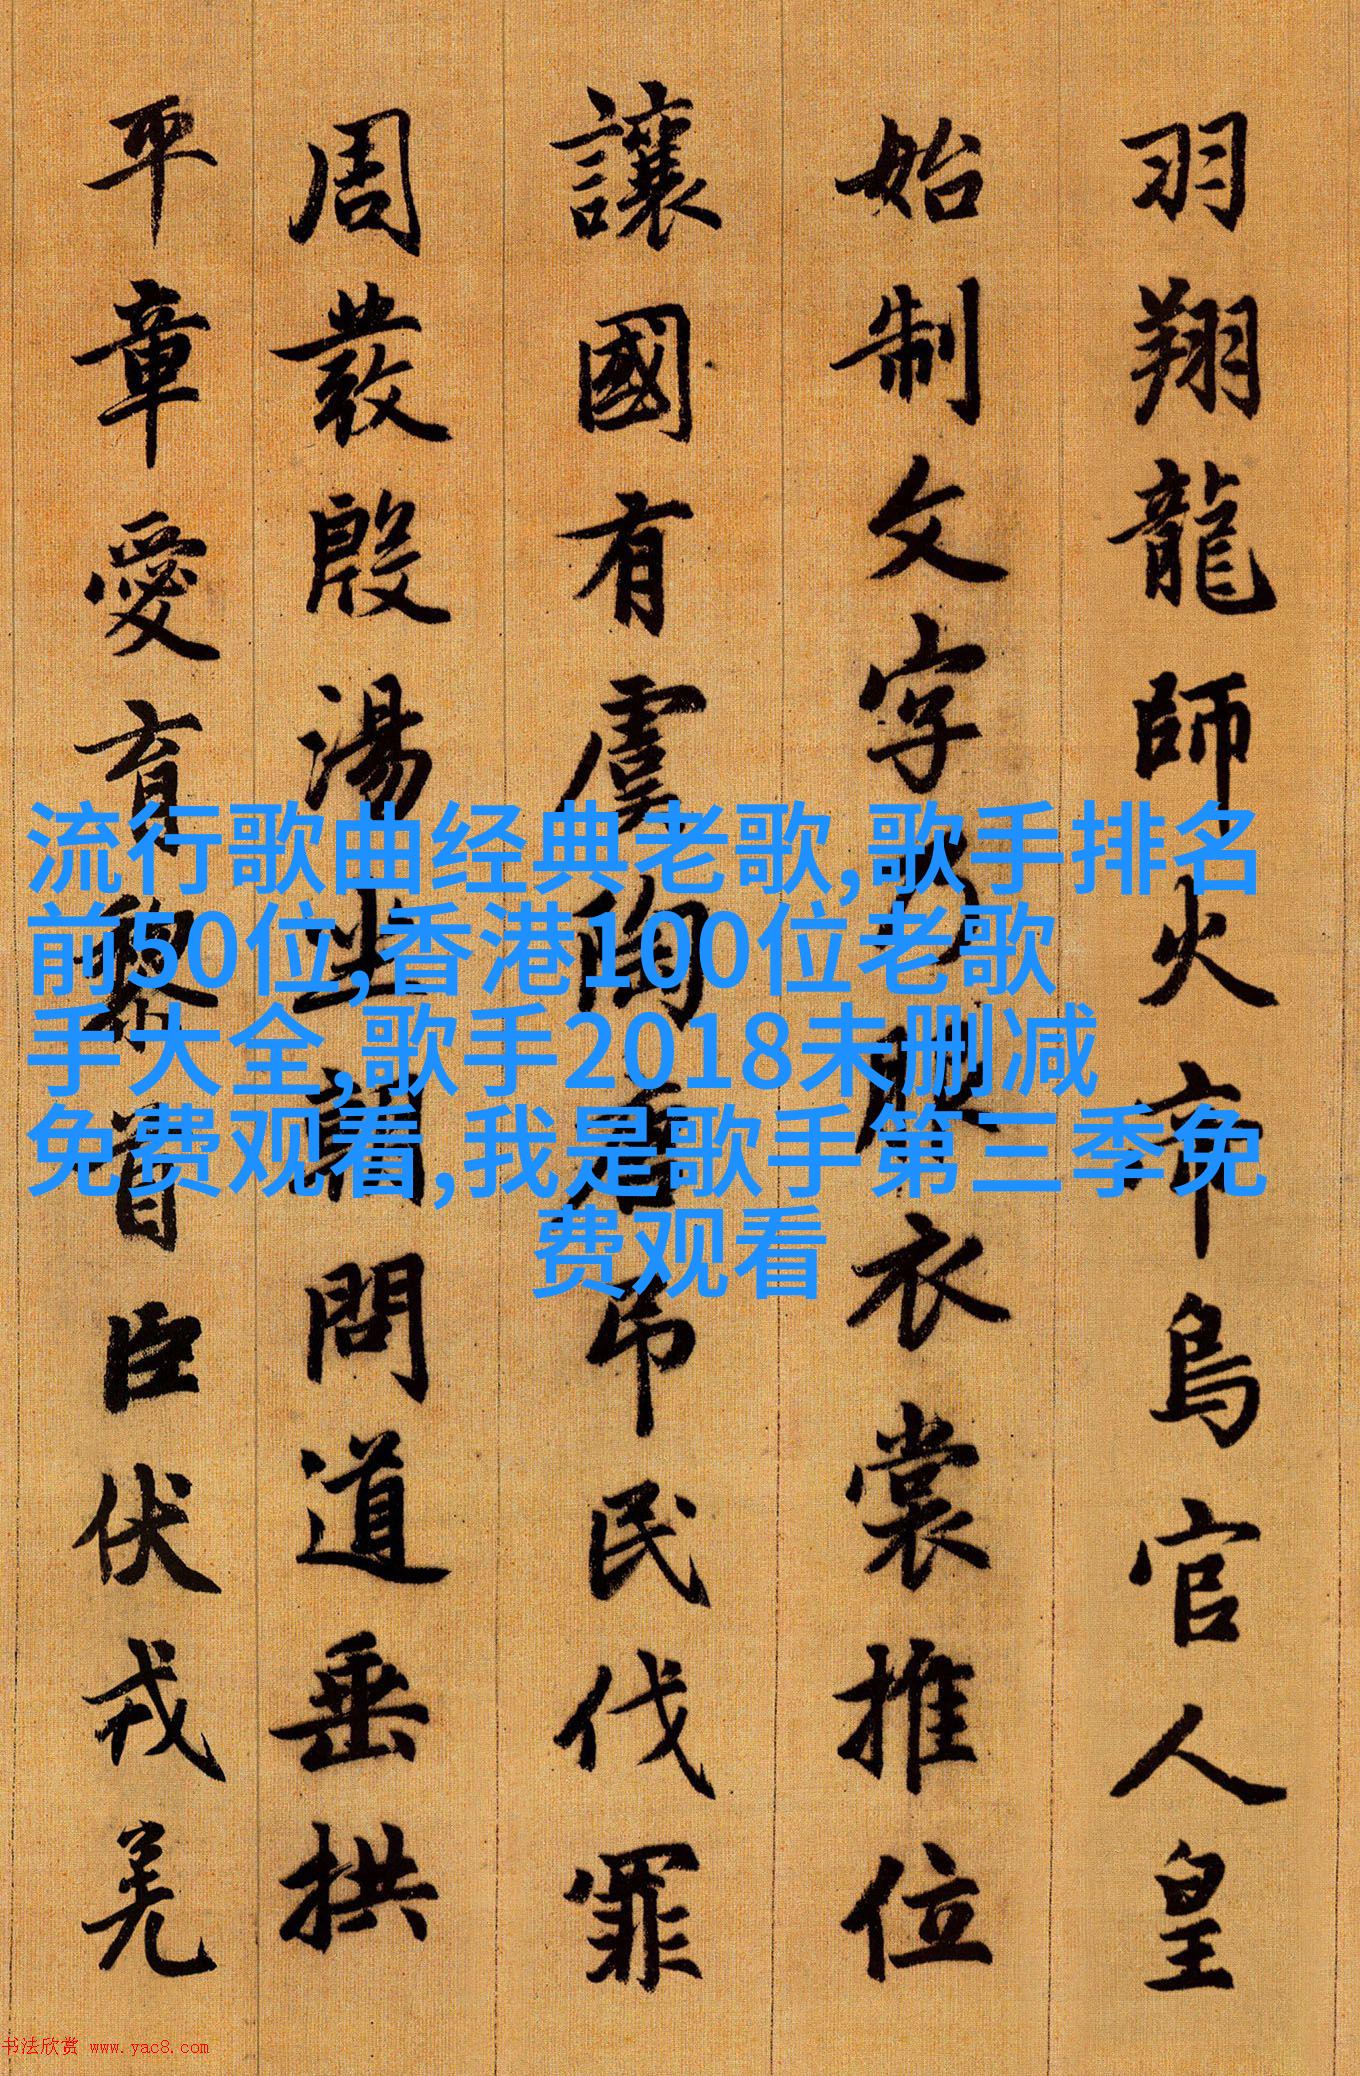 羽翔龍師火帝鳥官人皇
始制文字乃服衣裳推位
讓國有虞陶唐吊民伐罪
周發殷湯坐朝問道垂拱
平章愛育黎首臣伏戎羌
流行歌曲经典老歌,歌手排名
前50位,香港100位老歌
手大全,歌手2018未删减
免费观看,我是歌手第三季免
费观看
书法欣赏 www.yac8.com